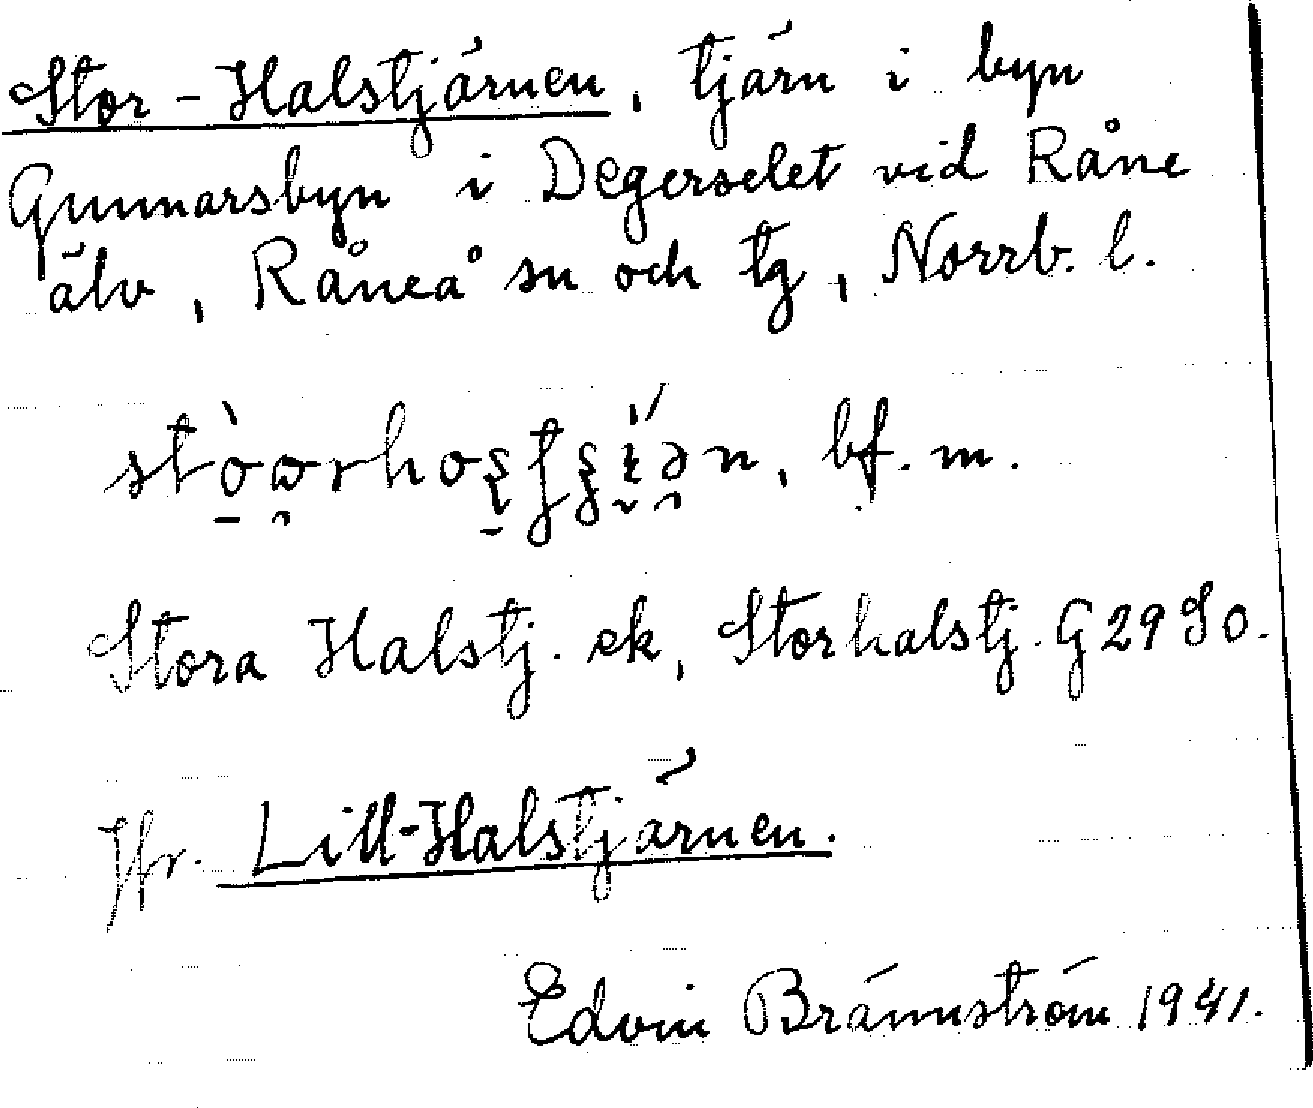 Stor-Halstjärnen, tjärn i byn
Gunnarsbyn i Degerselet vid Råne
älv, Råneå sn och tg, Norrb. l.
bf. m.
Stora Halstj. ek, Storhalstj. G 29 SO.
Jfr. Lill-Halstjärnen.
Edvin Brännström 1941.